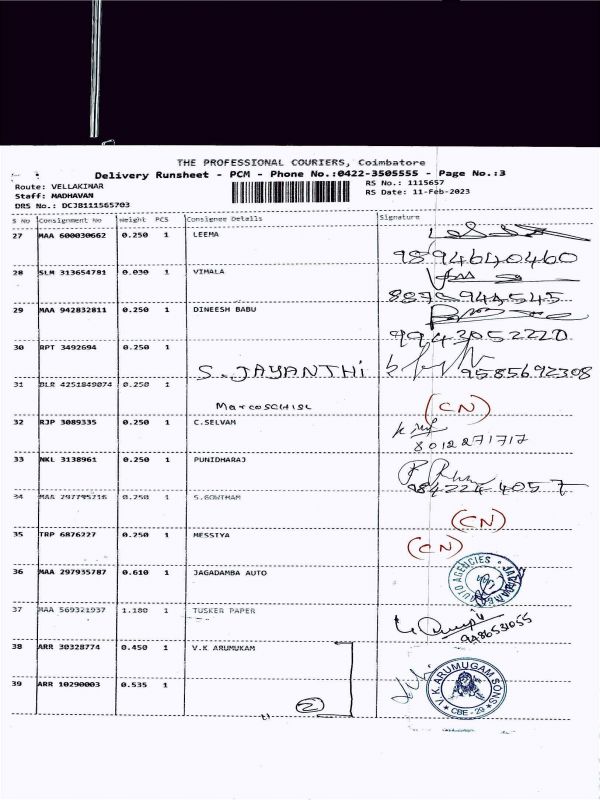 THE PROFESSIONAL COURIERS, Coimbatore
Delivery Runsheet - PCM - Phone No.:0422-3505555 - Page No.:3
Route: VELLAKINAR
RS No.: 1115657
Staff: MADHAVAN
RS Date: 11-Feb-2023
DRS No.: DCJ8111565703
S No Consignment No Weight PCS Consignee Details Signature
27 MAA 600030662 0.250 1 LEEMA
9894640460
28 SLM 313654781 0.030 1 VIMALA
8875944545
29 MAA 942832811 0.250 1 DINEESH BABU
9943052220
30 RPT 3492694 0.250 1
S.JAYANTHi 9585692308
31 BLR 4251849074 0.250 1
Marcoschisl (CN)
32 RJP 3089335 0.250 1 C.SELVAM
8012271717
33 NKL 3138961 0.250 1 PUNIDHARAJ
9842244057
34 MAA 297795216 0.250 1 S.GOWTHAM
(CN)
35 TRP 6876227 0.250 1 MESSIYA
(CN)
36 MAA 297935787 0.610 1 JAGADAMBA AUTO
AGENCIES
37 MAA 569321937 1.180 1 TUSKER PAPER
9486531055
38 ARR 30328774 0.450 1 V.K ARUMUKAM
39 ARR 10290003 0.535 1
2
V.K ARUMUGAM SONS
CBE - 29